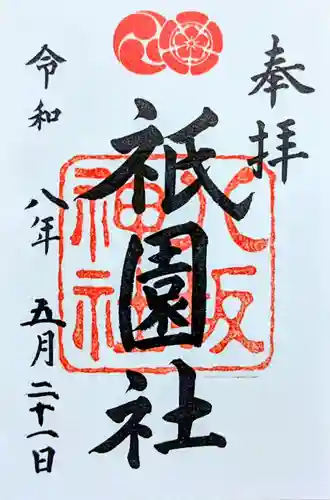 奉拝
祇園社
八坂神社
令和
八年
五月二十一日